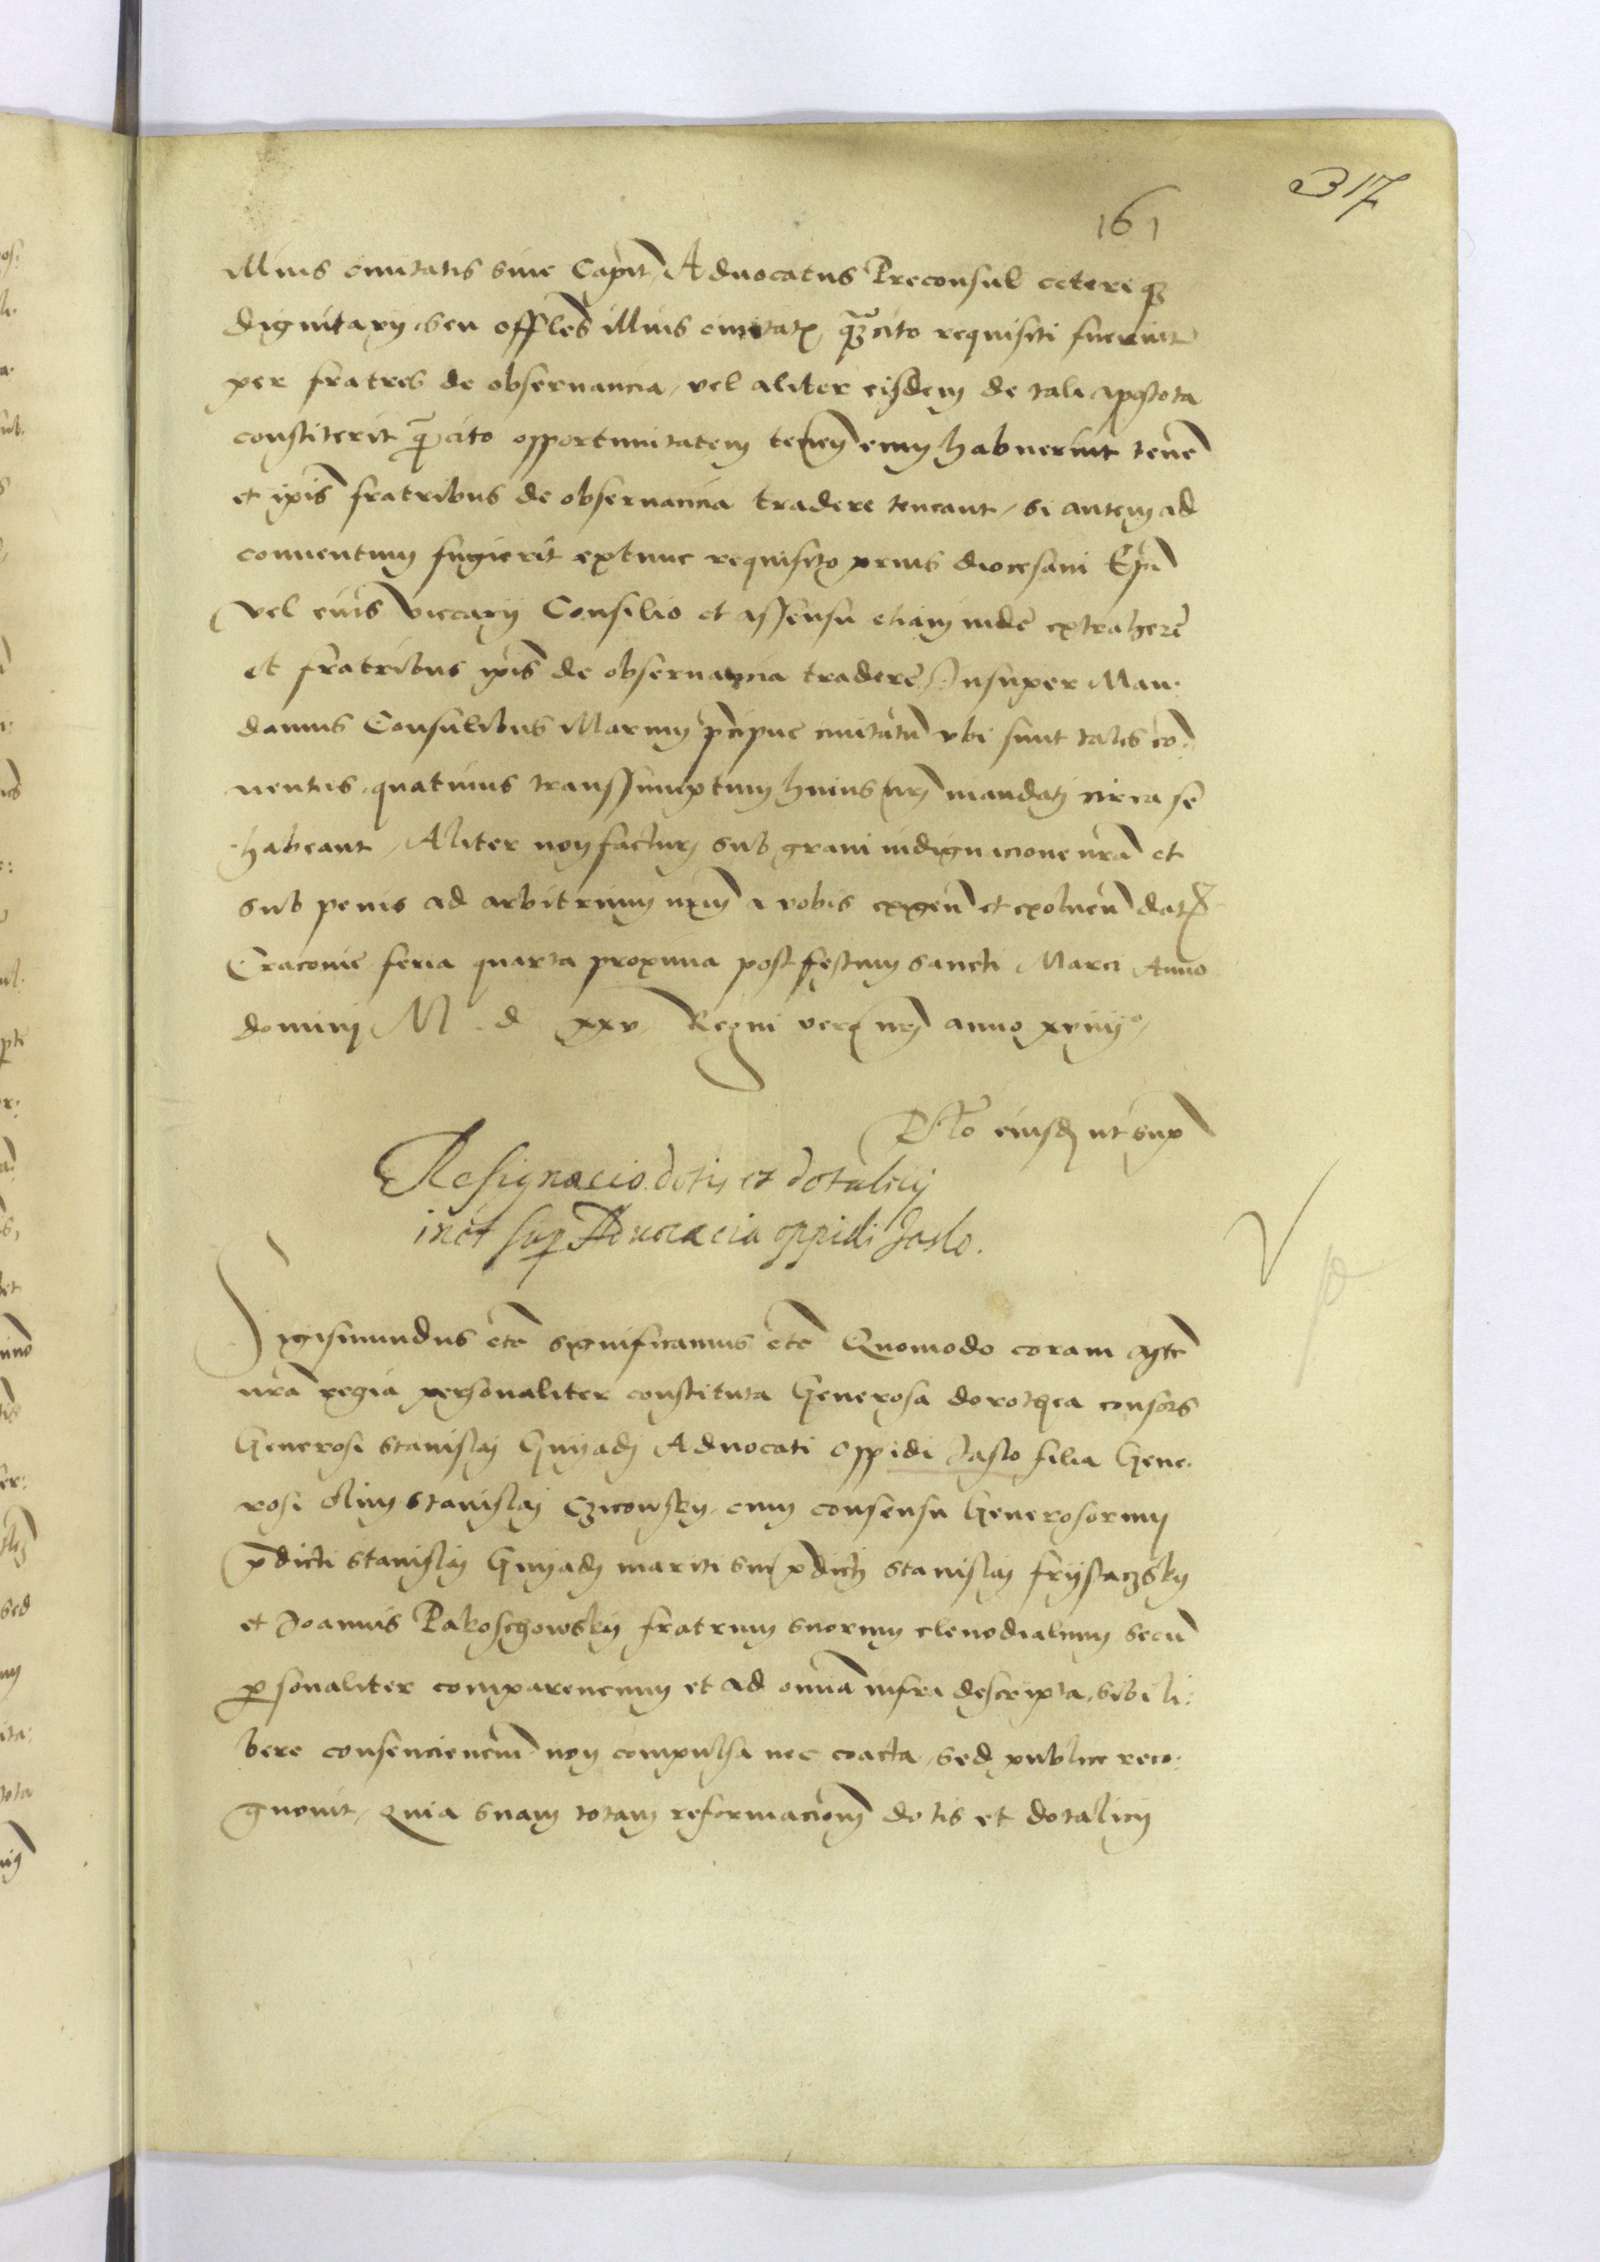 317
161
illius civitatis sive Capit Advocatus Preconsul ceterique
dignitarij seu offles illius civitat quacito requisiti fuerint
per fratres de observancia, vel aliter eisdem de tali apostota
constiterit qcito opportunitatem tenen eum habuerint tene
et ipis fratribus de observancia tradere teneant, si autem ad
conventum fugierit extunc requisito prius diocesani Epi
vel eius Viccarij Consilio et assensu etiam inde extrahere
et fratribus ipis de observancia tradere Insuper Man-
damus Consulibus Marium pcipue civitatu ubi sunt tales co-
nentus, quatinus transsumptum huius nri mandati circa se
habeant, Aliter non facturi sub gravi indignacione nra et
sub penis ad arbitrium nrum a vobis exigen et exolven dat
Cracovie feria quarta proxima post festum sancti Marci Anno
domini M d xxv Regni vero nri anno xviiijo,
Rlo eiusd ut sup
Resignacio dotis et dotalicij
inct sup Advocacia oppidi Jaslo.
Sigismundus etc significamus etc Quomodo coram Mte
nra regia personaliter constituta Generosa dorothea consors
Generosi Stanislaj Gnyadj Advocati oppidi Jaslo filia Gene-
rosi olim Stanislaj Czicowsky, cum consensu Generosorum
pdicti Stanislaj Gnyadj mariti sui pdicti Stanislaj frystaczsky
et Joannis Rakoschowsky fratrum suorum clenodialium secu
psonaliter comparencium et ad omnia infra descripta, sibi li-
bere consenciencium non compulsa nec coacta, sed publice reco-
gnovit, Quia suam totam reformacionem dotis et dotalicij